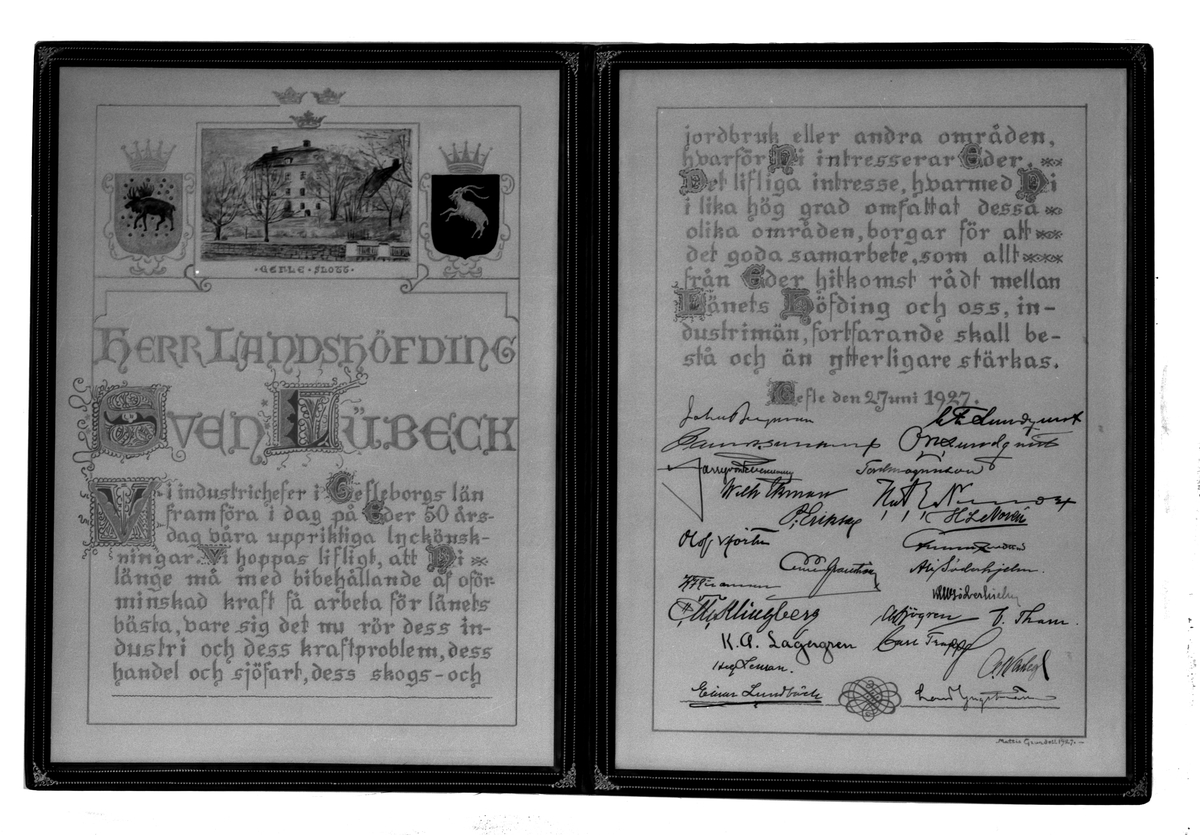 ·GEFLE·SLOTT·
HERR LANDSHÖFDING
SVEN LÜBECK
Vi industrichefer i Gefleborgs län
framföra i dag på Eder 50 års-
dag våra uppriktiga lyckönsk-
ningar. Vi hoppas lifligt, att Ni
länge må med bibehållande af oför-
minskad kraft få arbeta för länets
bästa, vare sig det nu rör dess in-
dustri och dess kraftproblem, dess
handel och sjöfart, dess skogs- och
jordbruk eller andra områden,
hvarför Ni intresserar Eder.
Det lifliga intresse, hvarmed Ni
i lika hög grad omfattat dessa
olika områden, borgar för att
det goda samarbete, som allt
från Eder hitkomst rådt mellan
Länets Höfding och oss, in-
dustrimän, fortfarande skall be-
stå och än ytterligare stärkas.
Gefle den 27 juni 1927.
Wilh Ekman
P. Eriksson
Olof Hjorth
Alf Söderhjelm.
Klingberg
Sjögren V. Tham.
K. A. Lagergren Carl Trapp
Einar Lundbäck
1927.